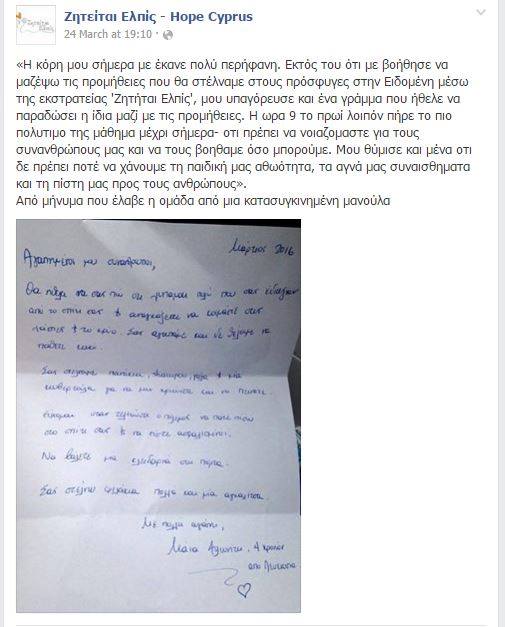 Ζητείται Ελπίς - Hope Cyprus
24 March at 19:10
«Η κόρη μου σήμερα με έκανε πολύ περήφανη. Εκτός του ότι με βοήθησε να
μαζέψω τις προμήθειες που θα στέλναμε στους πρόσφυγες στην Ειδομένη μέσω
της εκστρατείας 'Ζητήται Ελπίς', μου υπαγόρευσε και ένα γράμμα που ήθελε να
παραδώσει η ίδια μαζί με τις προμήθειες. Η ωρα 9 το πρωί λοιπόν πήρε το πιο
πολυτιμο της μάθημα μέχρι σήμερα- οτι πρέπει να νοιαζομαστε για τους
συνανθρώπους μας και να τους βοηθαμε όσο μπορούμε. Μου θύμισε και μένα οτι
δε πρέπει ποτέ να χάνουμε τη παιδική μας αθωότητα, τα αγνά μας συναισθηματα
και τη πίστη μας προς τους ανθρώπους».
Από μήνυμα που έλαβε η ομάδα από μια κατασυγκινημένη μανούλα
Μάρτιος 2016
Αγαπημένοι μου συνάνθρωποι,
Θα ήθελα να σας πω οτι λυπαμαι πολύ που σας έδιωξαν
από το σπίτι σας & αναγκάζεστε να κοιμάστε στις
λάσπες & το κρυο. Σας αγαπάμε και δε θέλουμε να
πάθετε κακό.
Σας στέλνουμε παπούτσια, & μια
κουβερτούλα για να μην κρυώνετε και να
όταν τελειώσει ο πόλεμος να πάτε πίσω
στο σπίτι σας & να είστε ασφαλισμένοι.
Να βάλετε μια κλειδαριά στη πόρτα.
Σας στέλνω φιλάκια πολλά και μια αγκαλίτσα.
Με πολλή αγάπη,
4 χρονών
από Λευκωσία